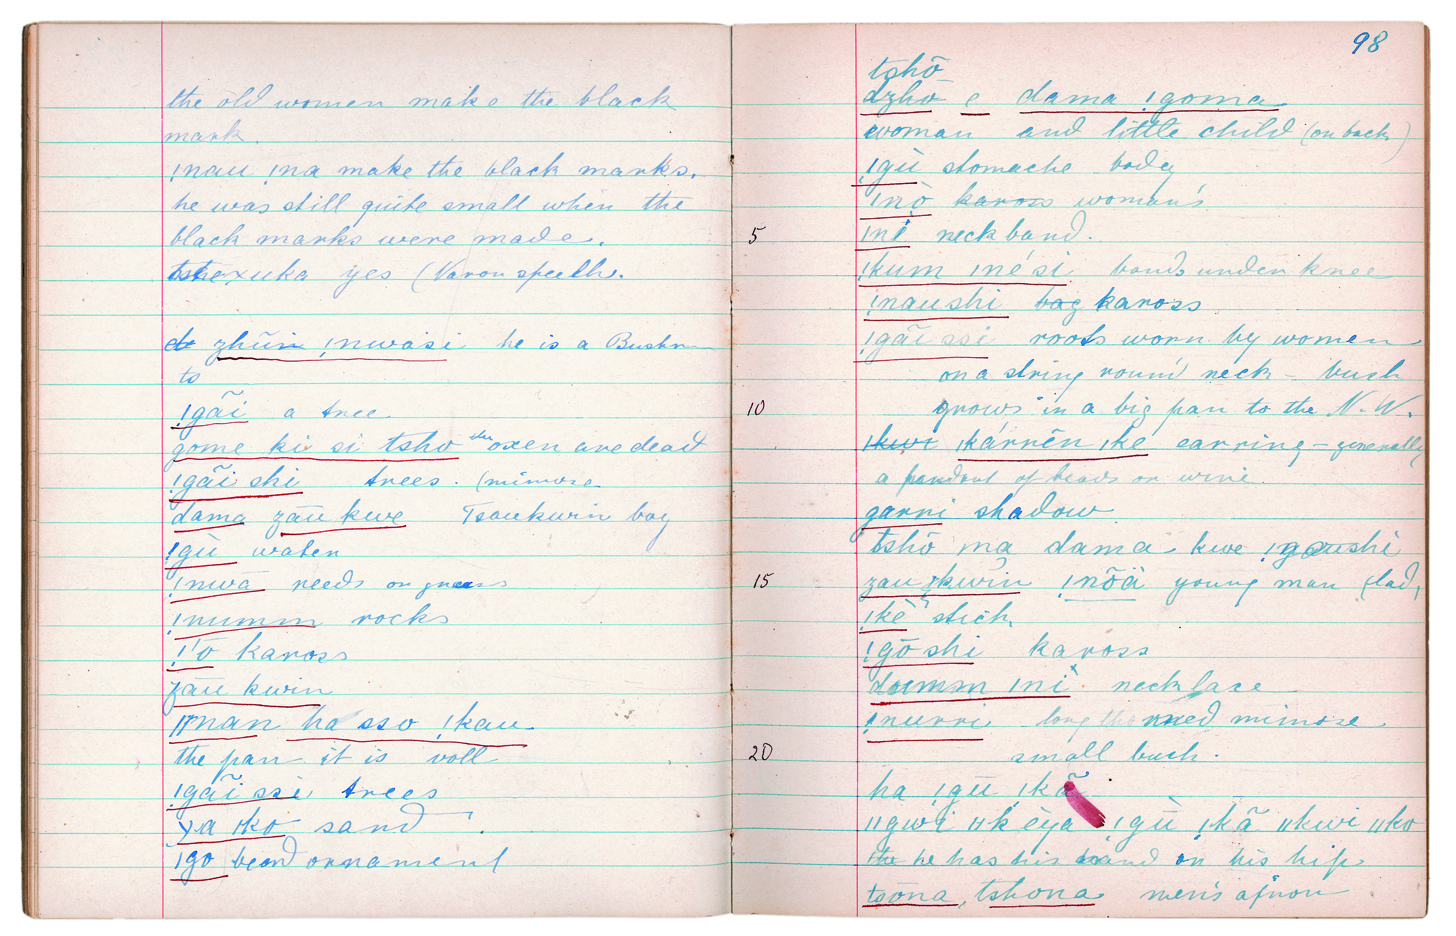 the old women make the black
mark.
!nau !na make the black marks.
he was still quite small when the
black marks were made.
xuka yes (Naron speech.
zhũin !nwasi he is a Bushm
to
!gãi a tree
gome ki si tsho the oxen are dead
!gãi shi trees. (mimosa
dama zāu kwe Tsaukwin boy
!gù water
!nwa reeds or grass
!numm rocks
!'o kaross
zāu kwin
ǁnan ha sso !kau
the pan it is voll
!gãi ssi trees
ya ǀko sand
!go bead ornament
98
tshō
dzhō e dama !goma
woman and little child (on back)
!gù stomache body
!nò kaross woman's
5
ǀni neckband.
!kum ǀnési bands under knee
!naushi bag kaross
!gãi ssi roots worn by women
on a string round neck – bush
10
grows in a big pan to the N.W.
ǀkwi ǀkárrĕn ǀké earring – generally
a pendant of beads or wire
garri shadow
tshō ma dama kwe !goushi
15
zau ǀkwin !nõä young man (lad,
!kē stick
!gō shi kaross
doumm ǀni necklace
!nurri long thorned mimose
20
small bush.
ha !gū ǀkã
ǁgwi ǁk éya !gù !kã ǁkwi ǁko
he has his hand on his hip
tsōna, tshona men's apron